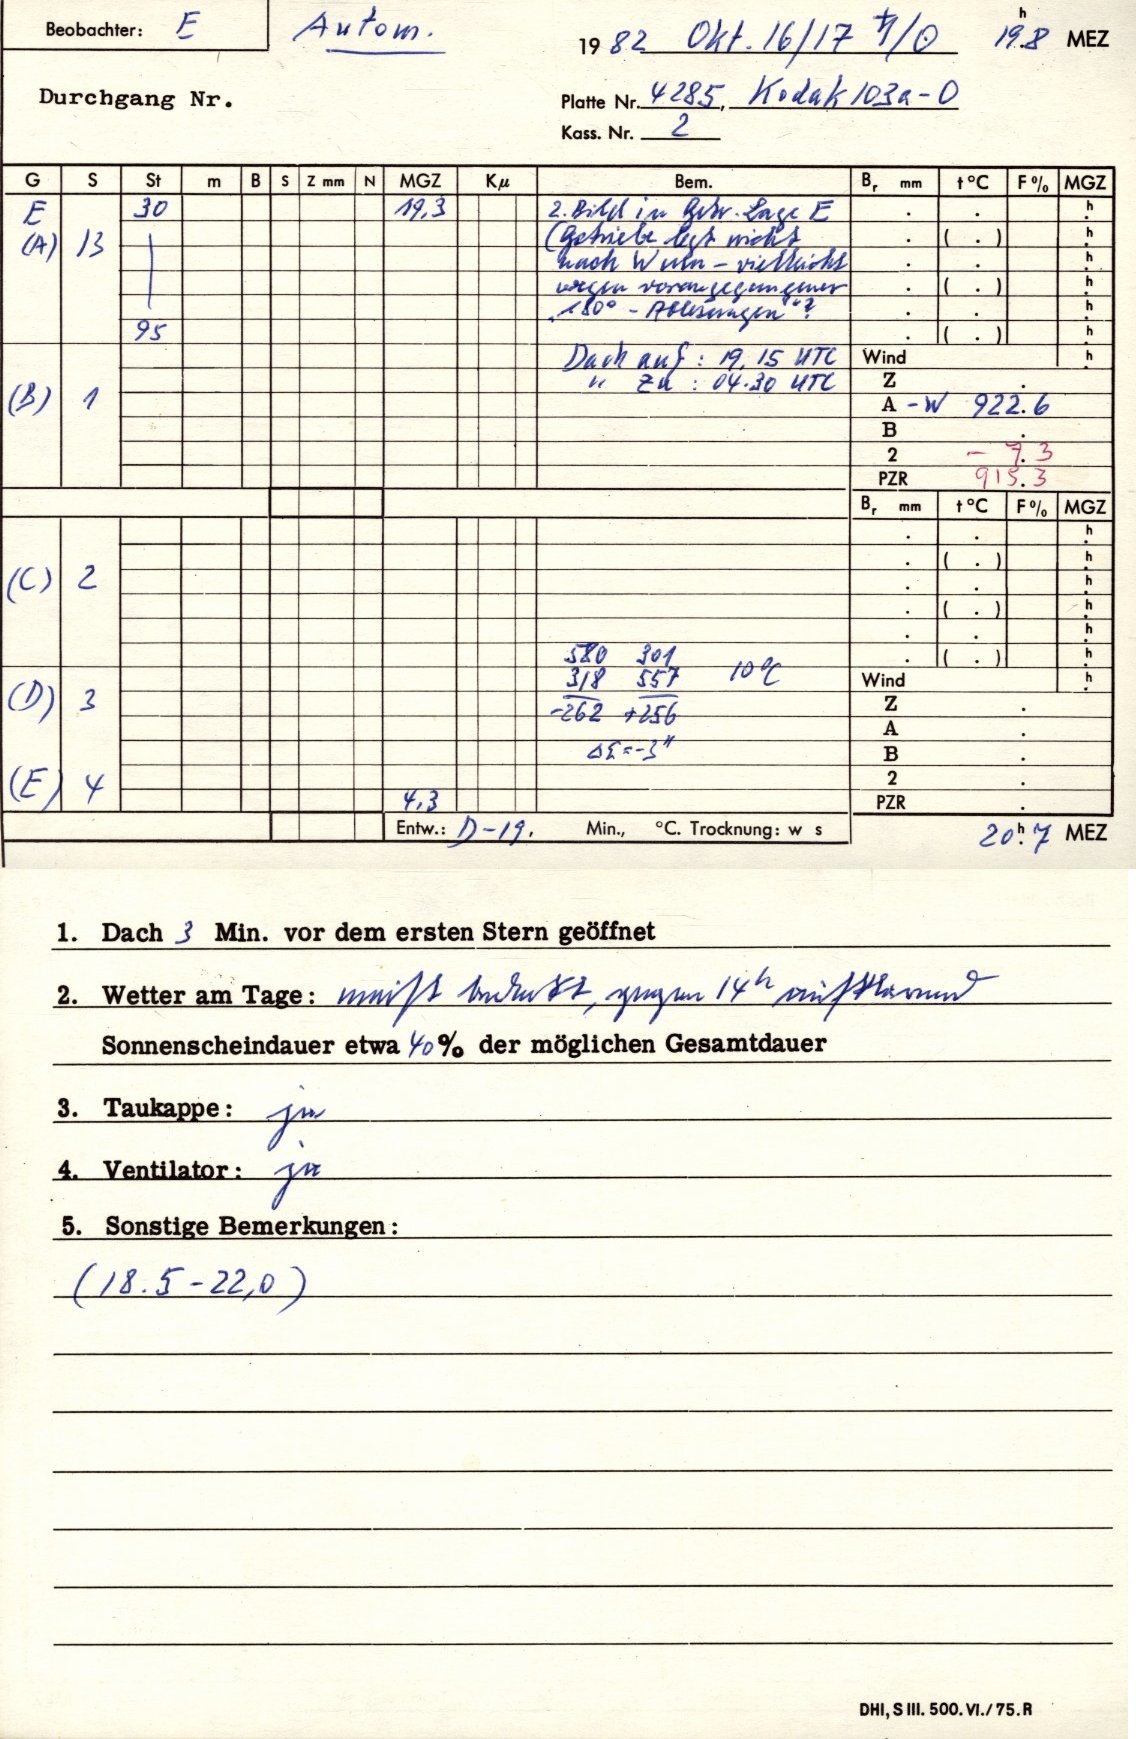 Beobachter: E Autom. 1982 Okt. 16/17 ♄/☉ 19.8ʰ MEZ
Durchgang Nr. Platte Nr. 4285, Kodak 103a-O
Kass. Nr. 2
G S St m B S Z mm N MGZ Kµ Bem. Bᵣ mm t °C F% MGZ
E 30 19,3 2. Bild in Lage E . . h
(A) 13 (Getriebe legt nicht . ( . ) h
nach W um – vielleicht . . h
wegen vorangegangener . ( . ) h
„180° - Ablesungen"? . . h
95 . ( . ) h
Dach auf : 19.15 UTC Wind h
" zu : 04.30 UTC Z .
(B) 1 A - W 922.6
B .
2 - 7.3
PZR 915.3
Bᵣ mm t °C F% MGZ
. . h
. ( . ) h
(C) 2 . . h
. ( . ) h
. . h
580 301 . ( . ) h
318 557 10°C Wind h
(D) 3 -262 +256 Z .
A .
ΔΣ = -3" B .
(E) 4 2 .
4,3 PZR .
Entw.: D-19, Min., °C. Trocknung: w s 20ʰ.7 MEZ
1. Dach 3 Min. vor dem ersten Stern geöffnet
2. Wetter am Tage: meist bedeckt, gegen 14ʰ aufklarend
Sonnenscheindauer etwa 40% der möglichen Gesamtdauer
3. Taukappe: ja
4. Ventilator: ja
5. Sonstige Bemerkungen:
(18.5-22,0)
DHI, S III. 500. VI./75. R